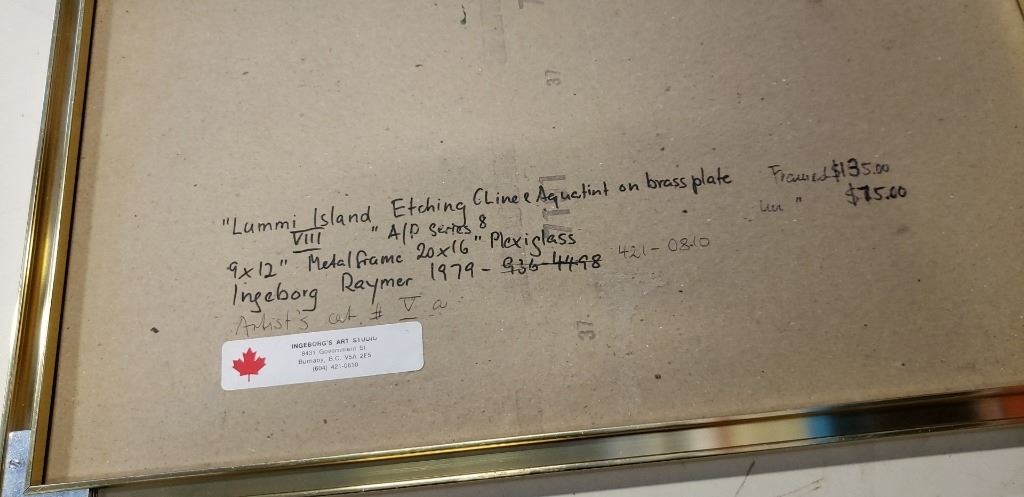 "Lummi Island Etching (Line & Aquatint on brass plate Framed $135.00
VIII " A/P Series 8 un " $75.00
9x12" Metal frame 20x16" Plexiglass
Ingeborg Raymer 1979 - 936-4498 421-0810
Artist's cat. # V a
INGEBORG'S ART STUDIO
8431 Government St.
Burnaby, B.C. V5A 2E5
(604) 421-0810
37
37